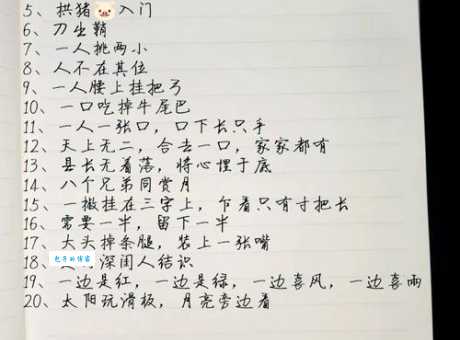 5、拱猪🐷入门
6、刀出鞘
7、一人挑两小
8、人不在其位
9、一人腰上挂把弓
10、一口吃掉牛尾巴
11、一人一张口，口下长只手
12、天上无二，合去一口，家家都有
13、县长无着落，将心埋于底
14、八个兄弟同赏月
15、一撇挂在三字上，乍看只有寸把长
16、需要一半，留下一半
17、大头掉条腿，装上一张嘴
18、深闺人结识
包子的博客
19、一边是红，一边是绿，一边喜风，一边喜雨
20、太阳玩滑板，月亮旁边看